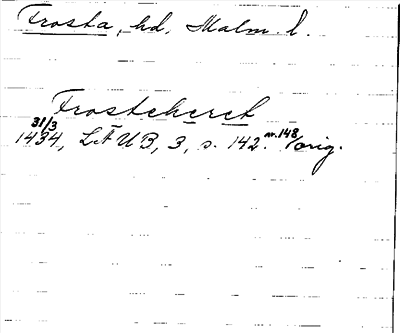 Frosta, hd. Malm. l.
Frosteheret
31/3
1434, LÄUB, 3, s. 142. nr. 148 orig.